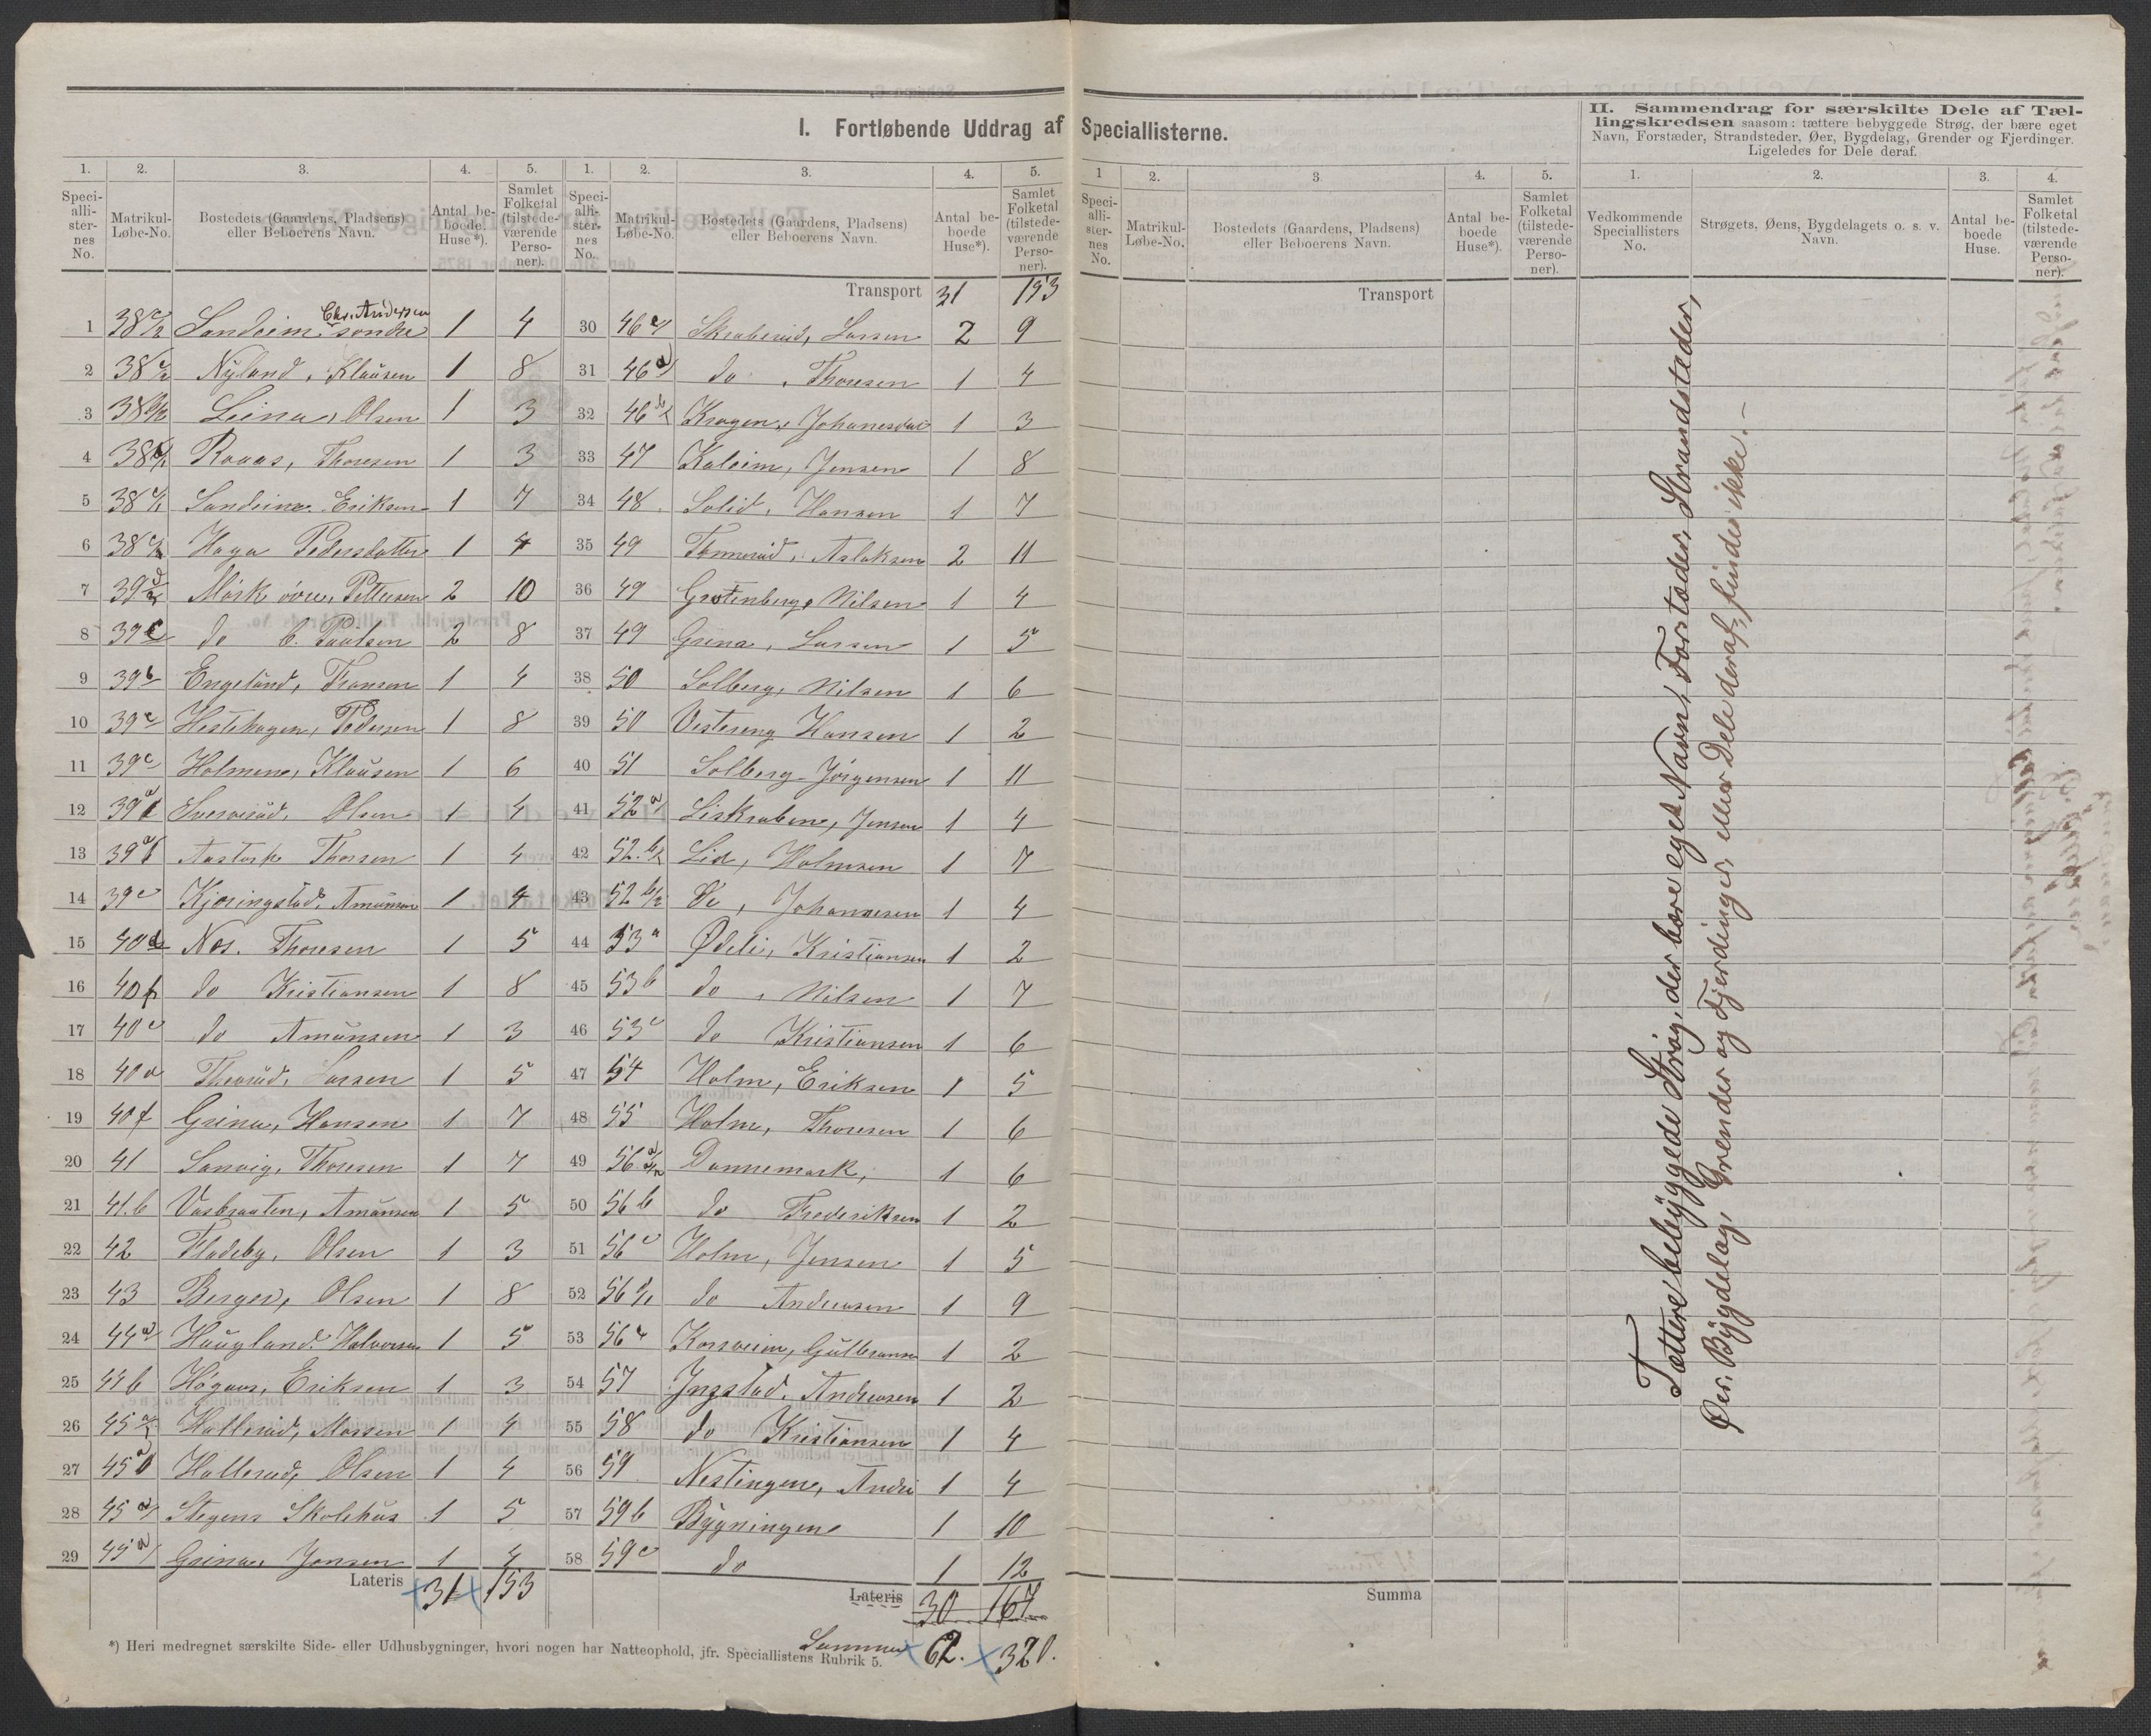 I. Fortløbende Uddrag af Speciallisterne.
1. 2. 3. 4. 5.
Speciallisternes No. Matrikul-Løbe-No. Bostedets (Gaardens, Pladsens) eller Beboerens Navn. Antal beboede Huse*). Samlet Folketal (tilstedeværende Personer).
Chr. Andersen
1 Sandeim søndre 1 4
2 Nyland, Klausen 1 8
3 Olsen 1 3
4 Thoresen 1 3
5 Eriksen 1 7
6 Haga Pedersdatter 1 4
7 Mørk øvre, Pettersen 2 10
8 do Paulsen 2 8
9 39b Engelund, Fransen 1 4
10 39c Hestehagen, Pedersen 1 8
11 39c Holmene, Klausen 1 6
12 Olsen 1 4
13 Aastorp Thorsen 1 4
14 39c Kjæringstad, Amunsen 1 4
15 Nes. Thoresen 1 5
16 do Kristiansen 1 8
17 40c do Amunsen 1 3
18 40a Larsen 1 5
19 40f Grina, Hansen 1 7
20 41 Sanvig, Thoresen 1 7
21 41.b Vasbraaten, Amunsen 1 5
22 42 Fladeby, Olsen 1 3
23 43 Berger, Olsen 1 8
24 44a Haugland. Halvorsen 1 5
25 44b Høgaas, Eriksen 1 3
26 Hallerud, 1 4
27 Hallerud, Olsen 1 4
28 Stegens Skolehus 1 5
29 Grina, Jensen 1 4
Lateris 31 153
*) Heri medregnet særskilte Side- eller Udhusbygninger, hvori nogen har Natteophold, jfr. Speciallistens Rubrik 5.
1. 2. 3. 4. 5.
Speciallisternes No. Matrikul-Løbe-No. Bostedets (Gaardens, Pladsens) eller Beboerens Navn. Antal beboede Huse*). Samlet Folketal (tilstedeværende Personer).
Transport 31 153
30 Skraberud, Larsen 2 9
31 do, Thoresen 1 4
32 Kragen, 1 3
33 47 Kaleim, Jensen 1 8
34 48 Solid, Hansen 1 7
35 49 Tannerud, Aslaksen 2 11
36 49 Grotenberg, Nilsen 1 4
37 49 Grina, Larsen 1 5
38 50 Solberg, Nilsen 1 6
39 50 Vestereng Hansen 1 2
40 51 Solberg Jørgensen 1 11
41 52a Liskrabene, Jensen 1 4
42 Lia, Holmsen 1 7
43 Johannesen 1 4
44 53a Ødeli, Kristiansen 1 2
45 53b do, Nilsen 1 7
46 53c do Kristiansen 1 6
47 54 Holm, Eriksen 1 5
48 55 Holm, Thoresen 1 6
49 Dannemark, 1 6
50 56b do Frederiksen 1 2
51 56c Holm, Jensen 1 5
52 do Andersen 1 9
53 Gulbransen 1 2
54 57 Ingstad, Andreasen 1 2
55 58 do Kristiansen 1 4
56 59 Nestingen, Andri 1 4
57 59b Bygningen 1 10
58 59c do 1 12
Lateris 30 167
Summa 62. 320.
1 2. 3. 4. 5.
Speciallisternes No. Matrikul-Løbe-No. Bostedets (Gaardens, Pladsens) eller Beboerens Navn. Antal beboede Huse*). Samlet Folketal (tilstedeværende Personer).
Transport
Summa
II. Sammendrag for særskilte Dele af Tællingskredsen saasom: tættere bebyggede Strøg, der bære eget Navn, Forstæder, Strandsteder, Øer, Bygdelag, Grender og Fjerdinger. Ligeledes for Dele deraf.
1. 2. 3. 4.
Vedkommende Speciallisters No. Strøgets, Øens, Bygdelagets o. s. v. Navn. Antal beboede Huse. Samlet Folketal (tilstedeværende Personer).
Tættere bebyggede Strøg, der bære eget Navn, Forstæder, Strandstæder,
Øer, Bygdelag, Grender og Fjerdinger, eller Dele deraf, findes ikke.—